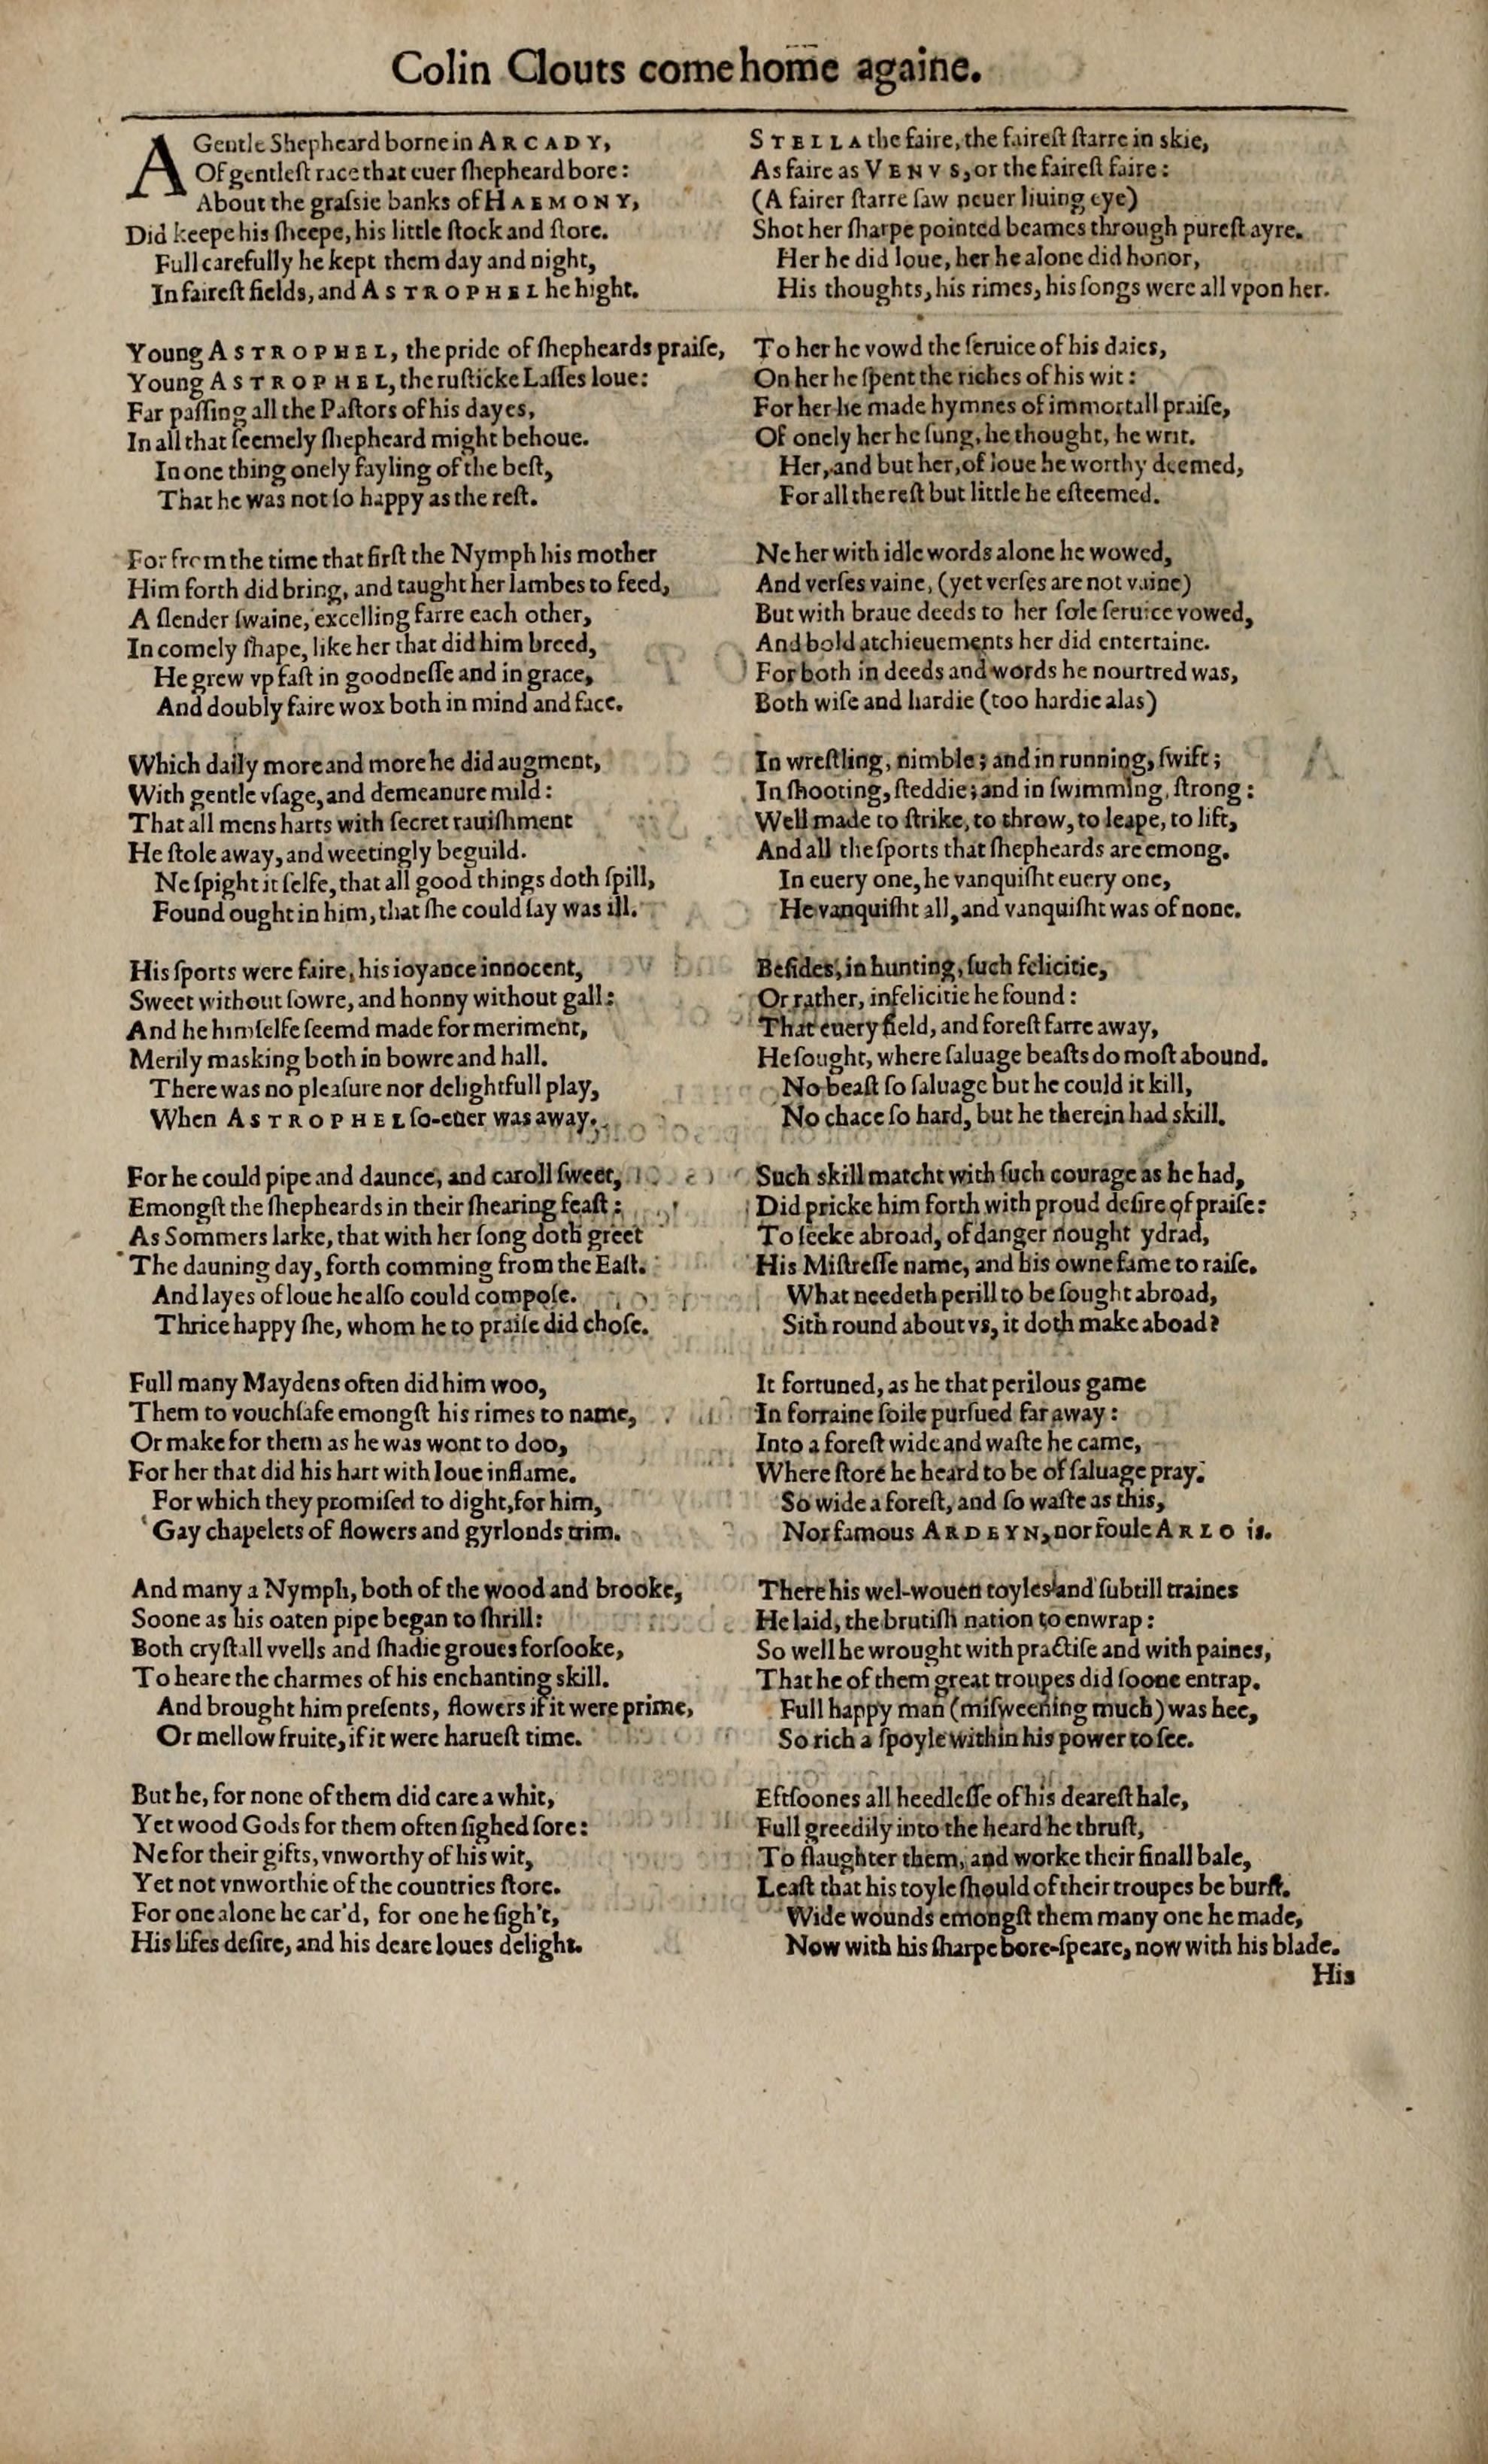 Colin Clouts come home againe.
A Gentle Shepheard borne in ARCADY,
Of gentleſt race that euer ſhepheard bore:
About the graſsie banks of HAEMONY,
Did keepe his ſheepe, his little ſtock and ſtore.
Full carefully he kept them day and night,
In faireſt fields, and ASTROPHEL he hight.
Young ASTROPHEL, the pride of ſhepheards praiſe,
Young ASTROPHEL, the ruſticke Laſſes loue:
Far paſſing all the Paſtors of his dayes,
In all that ſeemely ſhepheard might behoue.
In one thing onely fayling of the beſt,
That he was not ſo happy as the reſt.
For from the time that firſt the Nymph his mother
Him forth did bring, and taught her lambes to feed,
A ſlender ſwaine, excelling farre each other,
In comely ſhape, like her that did him breed,
He grew vp faſt in goodneſſe and in grace,
And doubly faire wox both in mind and face.
Which daily more and more he did augment,
With gentle vſage, and demeanure mild:
That all mens harts with ſecret rauiſhment
He ſtole away, and weetingly beguild.
Ne ſpight it ſelfe, that all good things doth ſpill,
Found ought in him, that ſhe could ſay was ill.
His ſports were faire, his ioyance innocent,
Sweet without ſowre, and honny without gall:
And he himſelfe ſeemd made for meriment,
Merily masking both in bowre and hall.
There was no pleaſure nor delightfull play,
When ASTROPHEL ſo-euer was away.
For he could pipe and daunce, and caroll ſweet,
Emongſt the ſhepheards in their ſhearing feaſt:
As Sommers larke, that with her ſong doth greet
The dauning day, forth comming from the Eaſt.
And layes of loue he alſo could compoſe.
Thrice happy ſhe, whom he to praiſe did choſe.
Full many Maydens often did him woo,
Them to vouchſafe emongſt his rimes to name,
Or make for them as he was wont to doo,
For her that did his hart with loue inflame.
For which they promiſed to dight, for him,
Gay chapelets of flowers and gyrlonds trim.
And many a Nymph, both of the wood and brooke,
Soone as his oaten pipe began to ſhrill:
Both cryſtall vvells and ſhadie groues forſooke,
To heare the charmes of his enchanting skill.
And brought him preſents, flowers if it were prime,
Or mellow fruite, if it were harueſt time.
But he, for none of them did care a whit,
Yet wood Gods for them often ſighed ſore:
Ne for their gifts, vnworthy of his wit,
Yet not vnworthie of the countries ſtore.
For one alone he car'd, for one he ſigh't,
His lifes deſire, and his deare loues delight.
STELLA the faire, the faireſt ſtarre in skie,
As faire as VENVS, or the faireſt faire:
(A fairer ſtarre ſaw neuer liuing eye)
Shot her ſharpe pointed beames through pureſt ayre.
Her he did loue, her he alone did honor,
His thoughts, his rimes, his ſongs were all vpon her.
To her he vowd the ſeruice of his daies,
On her he ſpent the riches of his wit:
For her he made hymnes of immortall praiſe,
Of onely her he ſung, he thought, he writ.
Her, and but her, of loue he worthy deemed,
For all the reſt but little he eſteemed.
Ne her with idle words alone he wowed,
And verſes vaine, (yet verſes are not vaine)
But with braue deeds to her ſole ſeruice vowed,
And bold atchieuements her did entertaine.
For both in deeds and words he nourtred was,
Both wiſe and hardie (too hardie alas)
In wreſtling, nimble; and in running, ſwift;
In ſhooting, ſteddie; and in ſwimming, ſtrong:
Well made to ſtrike, to throw, to leape, to lift,
And all the ſports that ſhepheards are emong.
In euery one, he vanquiſht euery one,
He vanquiſht all, and vanquiſht was of none.
Beſides, in hunting, ſuch felicitie,
Or rather, infelicitie he found:
That euery field, and foreſt farre away,
He ſought, where ſaluage beaſts do moſt abound.
No beaſt ſo ſaluage but he could it kill,
No chace ſo hard, but he therein had skill.
Such skill matcht with ſuch courage as he had,
Did pricke him forth with proud deſire of praiſe:
To ſeeke abroad, of danger nought ydrad,
His Miſtreſſe name, and his owne fame to raiſe.
What needeth perill to be ſought abroad,
Sith round about vs, it doth make aboad?
It fortuned, as he that perilous game
In forraine ſoile purſued far away:
Into a foreſt wide and waſte he came,
Where ſtore he heard to be of ſaluage pray.
So wide a foreſt, and ſo waſte as this,
Nor famous ARDEYN, nor foule ARLO is.
There his wel-wouen toyles and ſubtill traines
He laid, the brutiſh nation to enwrap:
So well he wrought with practiſe and with paines,
That he of them great troupes did ſoone entrap.
Full happy man (miſweening much) was hee,
So rich a ſpoyle within his power to ſee.
Eftſoones all heedleſſe of his deareſt hale,
Full greedily into the heard he thruſt,
To ſlaughter them, and worke their finall bale,
Leaſt that his toyle ſhould of their troupes be burſt.
Wide wounds emongſt them many one he made,
Now with his ſharpe bore-ſpeare, now with his blade.
His